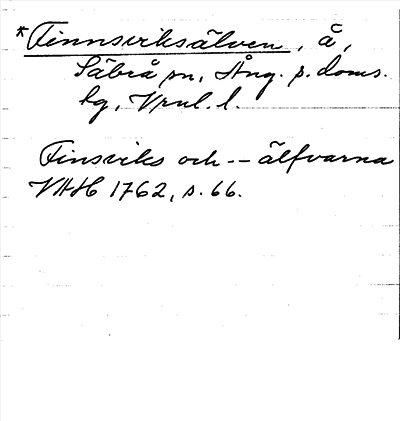 *Finnsviksälven, å,
Säbrå sn, Ång. s. doms.
kg, Vnl. l.
Finsviks och -- älfvarna
VHH 1762, s. 66.